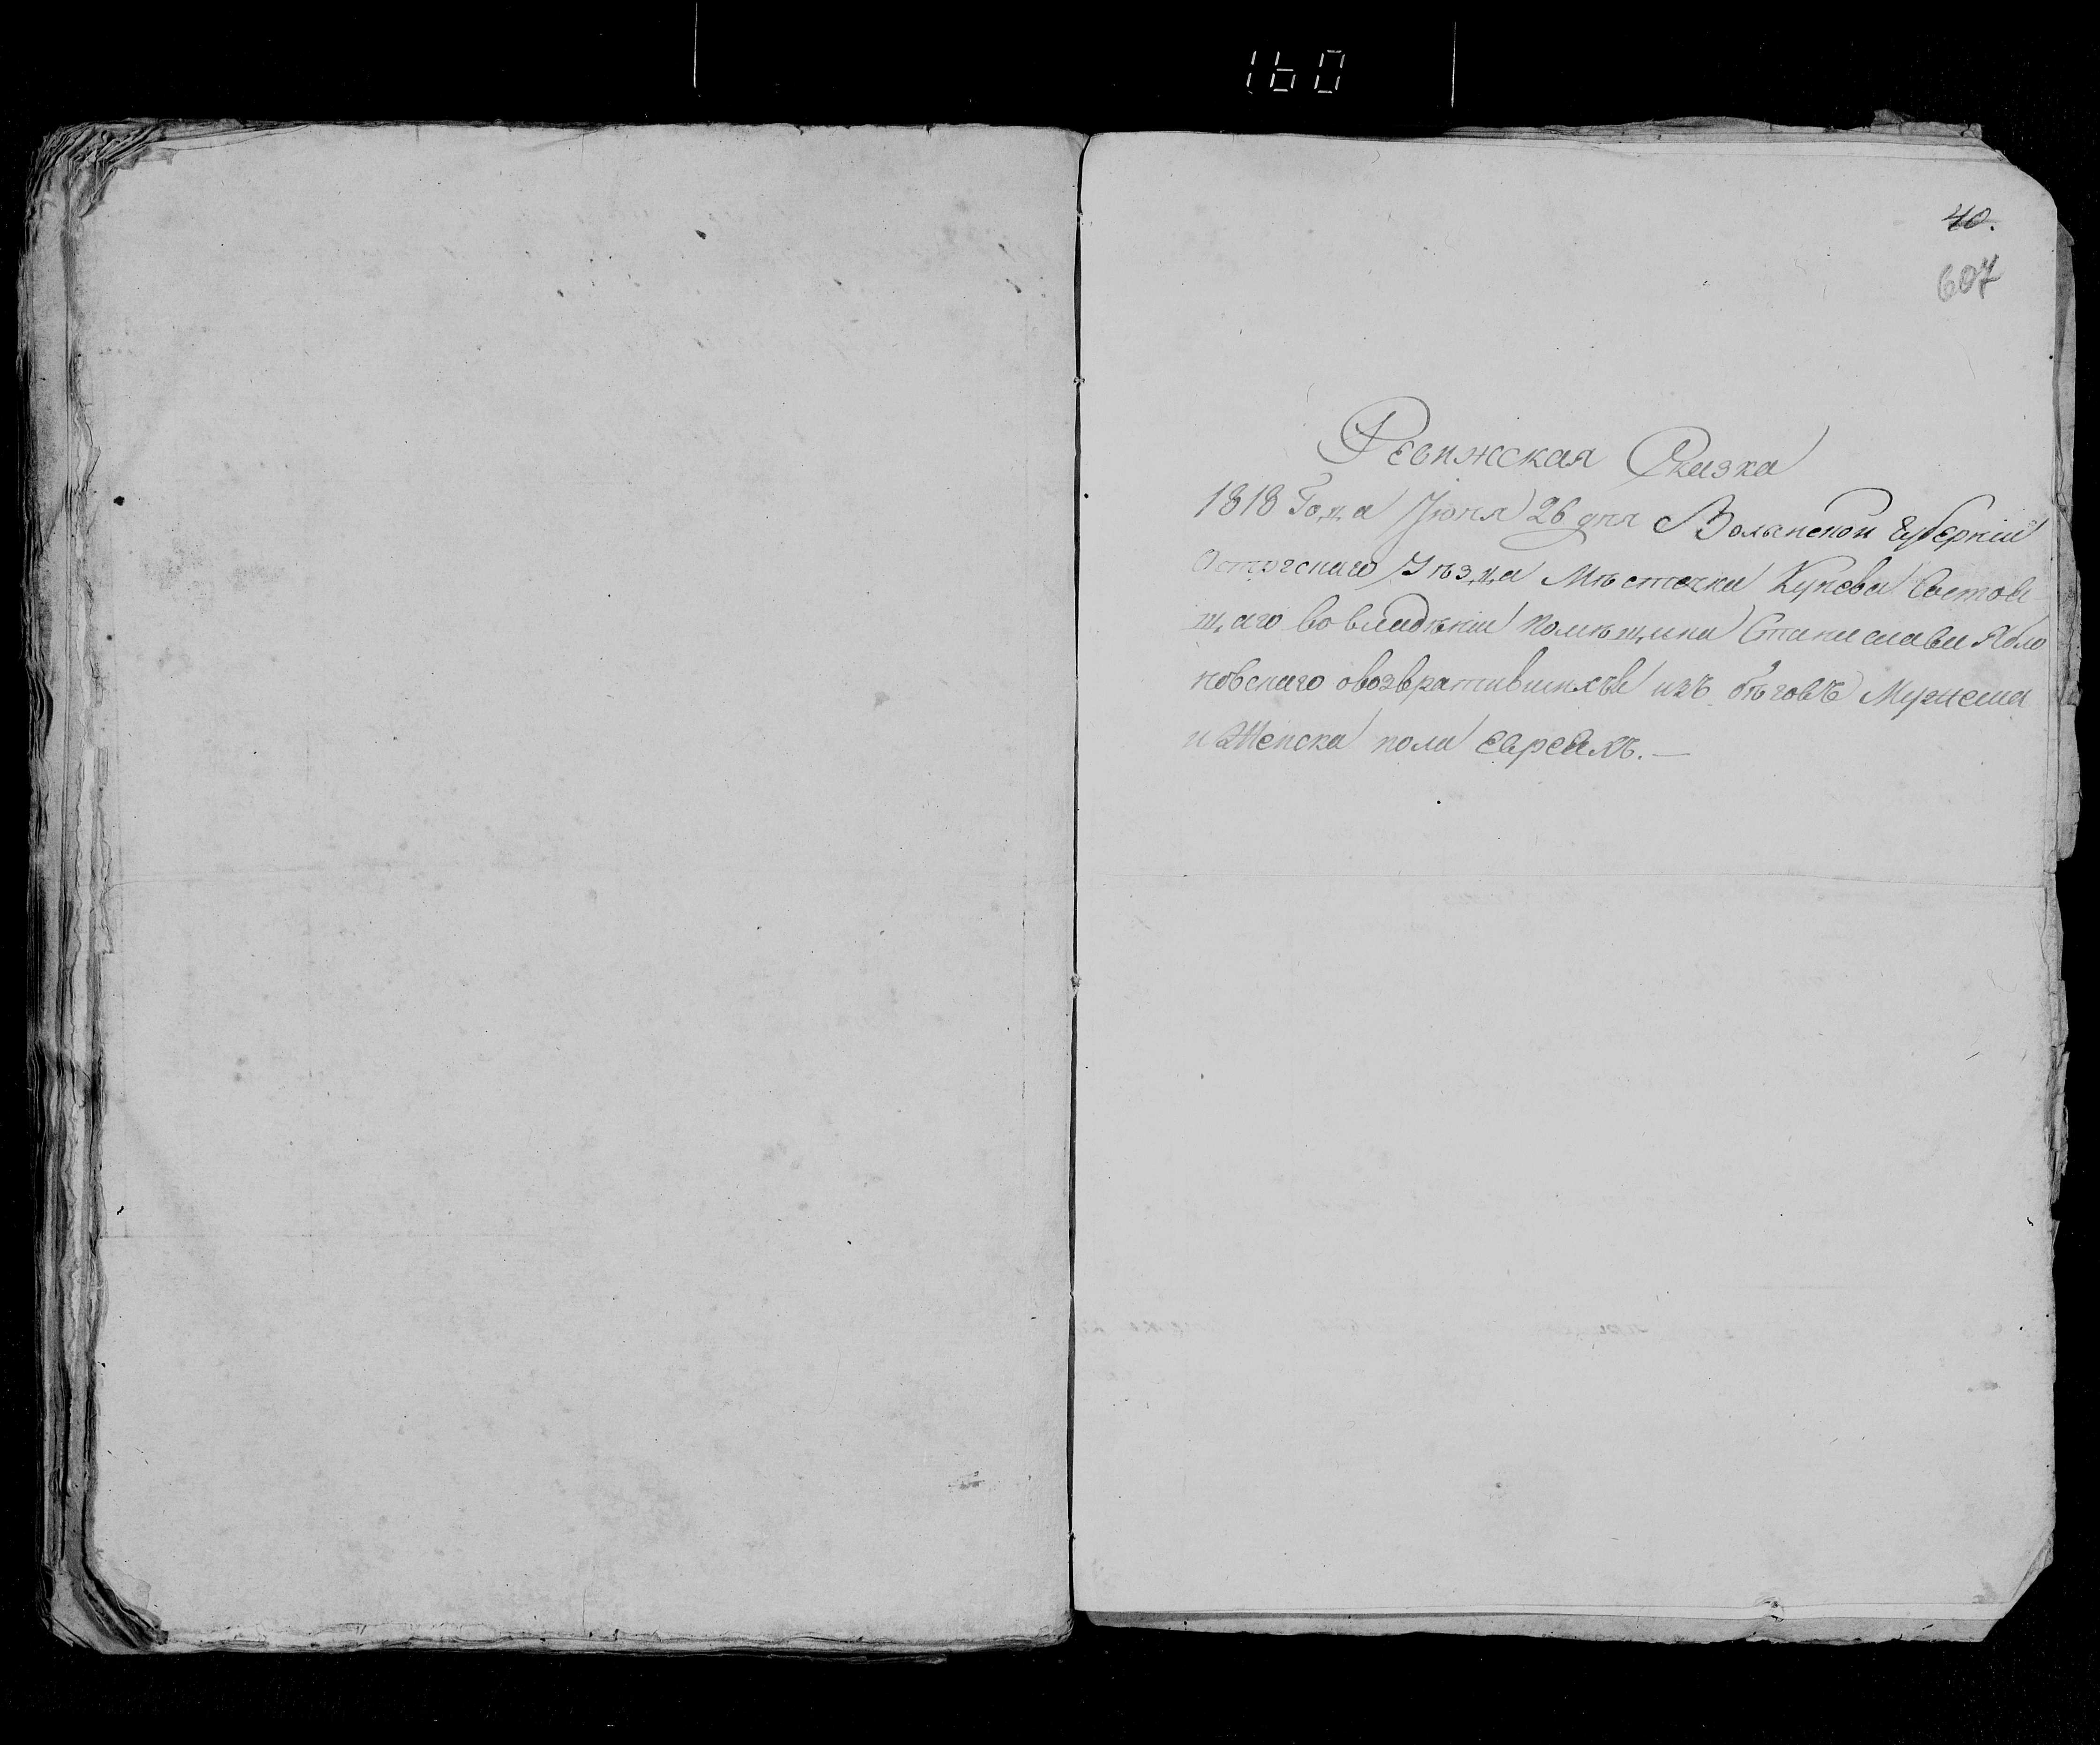 160
40.
607
Ревижская Сказка
1818 Года Июня 26 дня Волынской Губернїи
Острогскаго Уѣзда Мѣстечка Кунева Состоя
щаго во владѣнїи помѣщика Станислава Ябло
новскаго овозвратившихъся изъ бѣговъ Мужеска
и Женска пола Евреяхъ.—